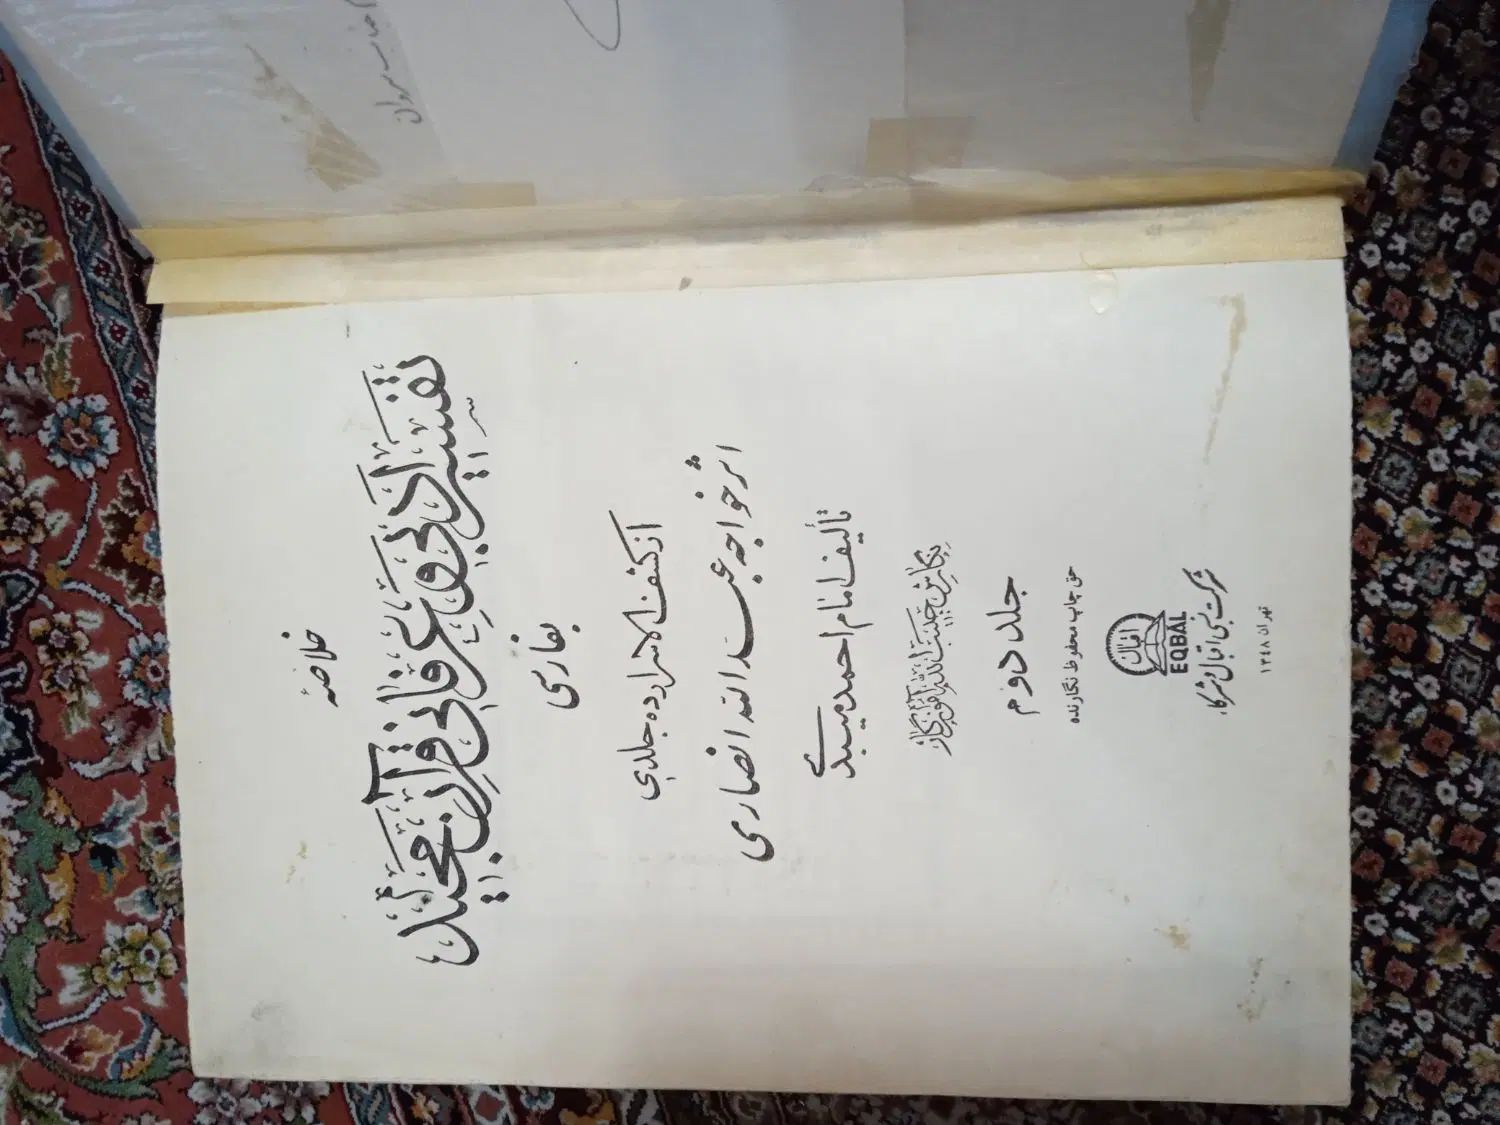 خلاصهٔ
تفسیر ادبی و عرفانی قرآن مجید
بفارسی
از کشف الاسرار ده جلدی
اثر خواجه عبدالله انصاری
تألیف امام احمد میبدی
نگارش حبیب الله آموزگار
جلد دوم
حق چاپ محفوظ نگارنده
اقبال
EQBAL
شرکت نسبی اقبال و شرکاء
تهران ۱۳۴۸